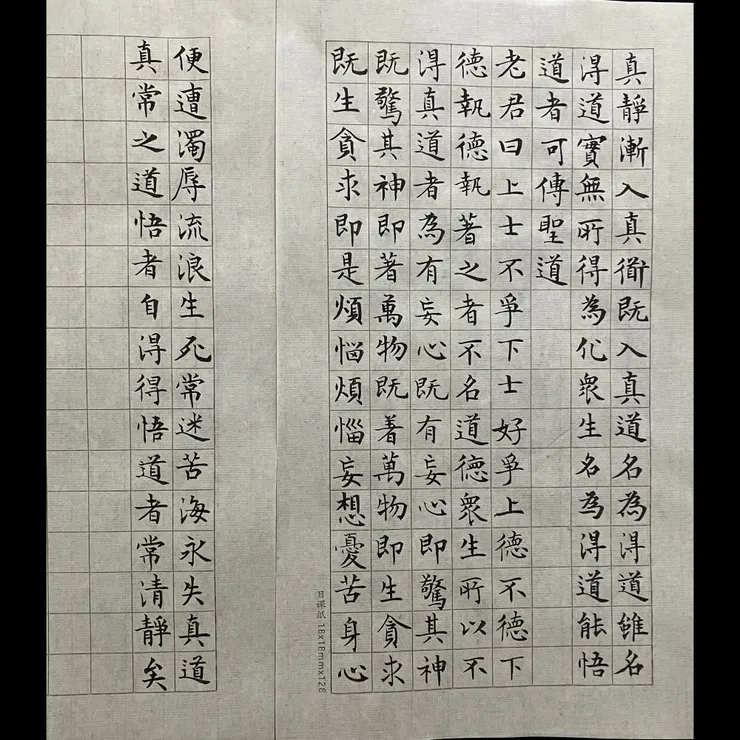 真靜漸入真衜既入真道名為得道雖名
得道實無所得為化衆生名為得道能悟
道者可傳聖道
老君曰上士不爭下士好爭上德不德下
德執德執著之者不名道德衆生所以不
得真道者為有妄心既有妄心即驚其神
既驚其神即著萬物既着萬物即生貪求
既生貪求即是煩惱煩惱妄想憂苦身心
日課紙 18x18mmx128
便遭濁辱流浪生死常迷苦海永失真道
真常之道悟者自得得悟道者常清靜矣